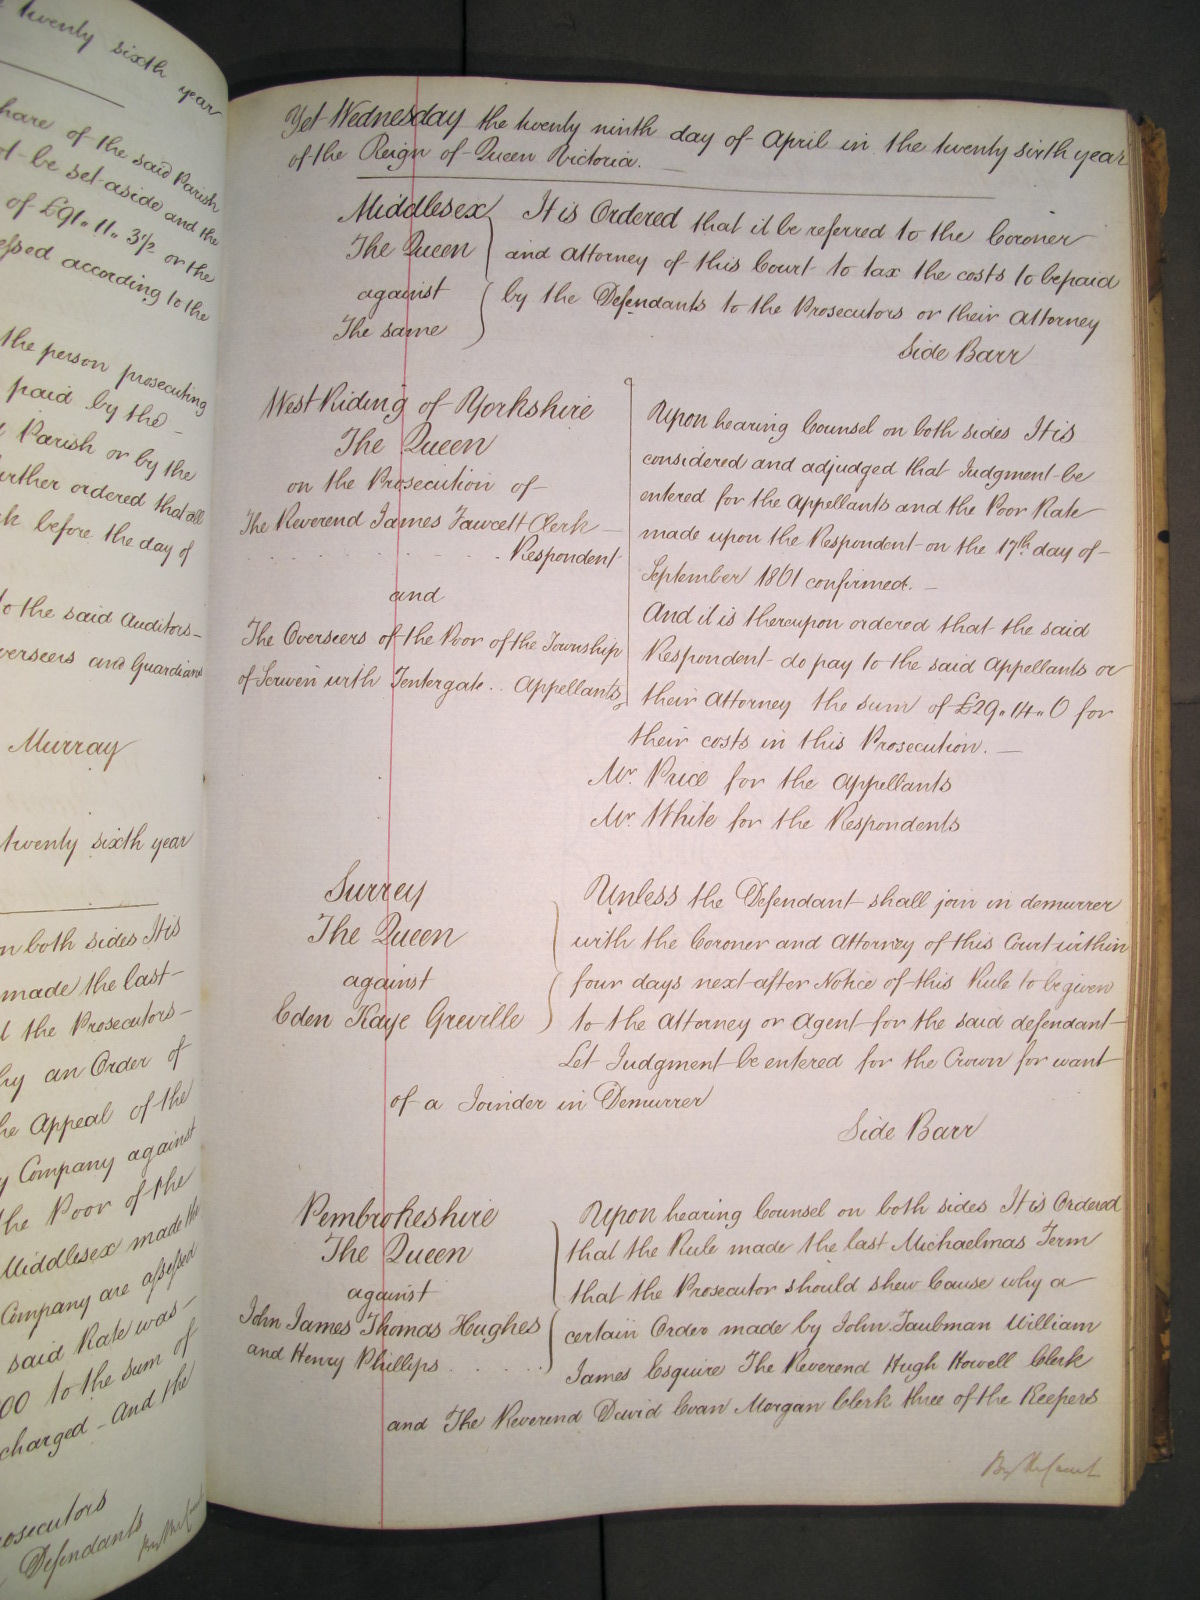 twenty sixth year
share of the said Parish
be set aside and the
of £91. 11. 3½ or the
essed according to the
the person prosecuting
paid by the
Parish or by the
further ordered that all
before the day of
to the said Auditors
Overseers and Guardians
Murray
twenty sixth year
on both sides It is
made the last
the Prosecutors
why an Order of
the Appeal of the
Company against
the Poor of the
Middlesex made the
Company are assessed
said Rate was
00 to the sum of
charged - And the
Prosecutors
Defendants
By the Court
Yet Wednesday the twenty ninth day of April in the twenty sixth year
of the Reign of Queen Victoria.
Middlesex
The Queen
against
The same
It is Ordered that it be referred to the Coroner
and Attorney of this Court to tax the costs to be paid
by the Defendants to the Prosecutors or their Attorney
Side Barr
West Riding of Yorkshire
The Queen
on the Prosecution of
The Reverend James Fawcett Clerk
Respondent
and
The Overseers of the Poor of the Township
of Scriven with Tentergate .. Appellants
Upon hearing Counsel on both sides It is
considered and adjudged that Judgment be
entered for the Appellants and the Poor Rate
made upon the Respondent on the 17th day of
September 1861 confirmed.
And it is thereupon ordered that the said
Respondent do pay to the said Appellants or
their Attorney the sum of £29. 14. 0 for
their costs in this Prosecution.
Mr. Price for the Appellants
Mr. White for the Respondents
Surrey
The Queen
against
Eden Kaye Greville
Unless the Defendant shall join in demurrer
with the Coroner and Attorney of this Court within
four days next after Notice of this Rule to be given
to the Attorney or Agent for the said defendant
Let Judgment be entered for the Crown for want
of a Joinder in Demurrer
Side Barr
Pembrokeshire
The Queen
against
John James Thomas Hughes
and Henry Phillips . . . . .
Upon hearing Counsel on both sides It is Ordered
that the Rule made the last Michaelmas Term
that the Prosecutor should shew Cause why a
certain Order made by John Taubman William
James Esquire The Reverend Hugh Howell Clerk
and The Reverend David Evan Morgan Clerk three of the Keepers
By the Court